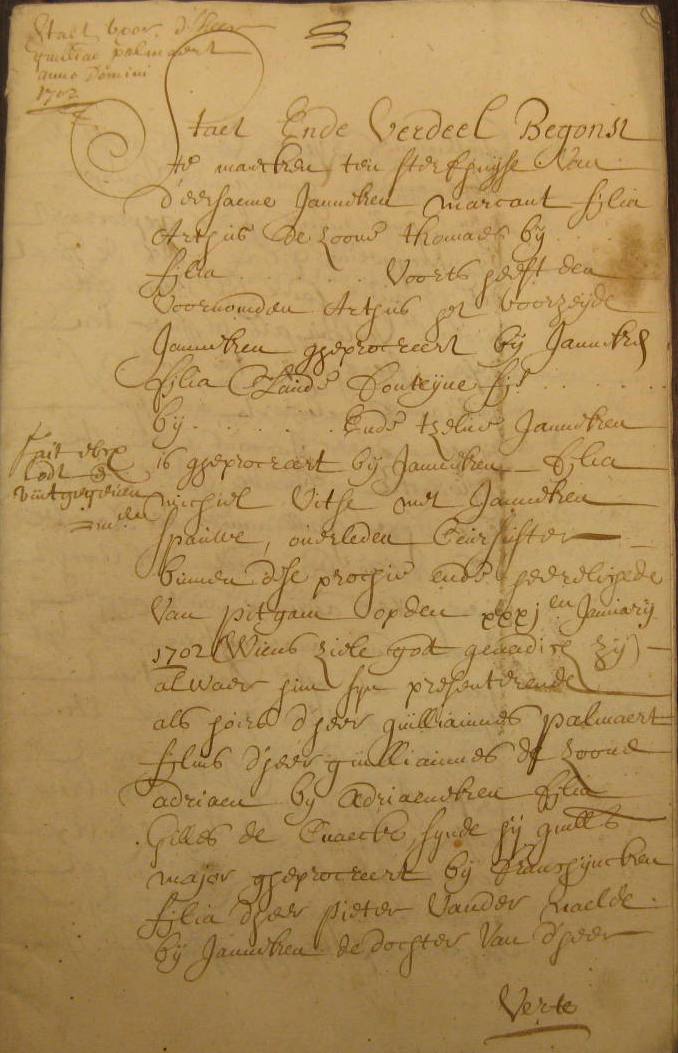 Staet voor d'heer
guilliae palmaert
anno Domini
1702
Staet Ende Verdeel Begonst
te maecken ten sterfhuyse Van
d'eersaeme Janneken marcant filia
Arthus de zoone thomaes by
filia . . . . . Voorts heeft den
Voornomden Arthus het voorzeyde
Janneken gheprocreert by Janneken
filia Clauds Fonteyne fs
by . . . . . . Ende tzelve Janneken
is gheprocreert by Janneken filia
michiel Vitse met Janneken
Spauwe, overleden
binnen dese prochie ende heerelichede
Van pitgam opden xxxj en Januarij
1702 (Wiens ziele godt genadich zy)
alwaer hun syn presenterende
als hoirs d'heer guilliaumes palmaert
filius d'heer guilliaumes de zoone
adriaen by Adriaeneken filia
Gilles de Cnaecke, synde hy guille
major gheprocreert by franchynken
filia d'heer pieter Vander naelde
by Janneken de dochter Van d'heer
Verte